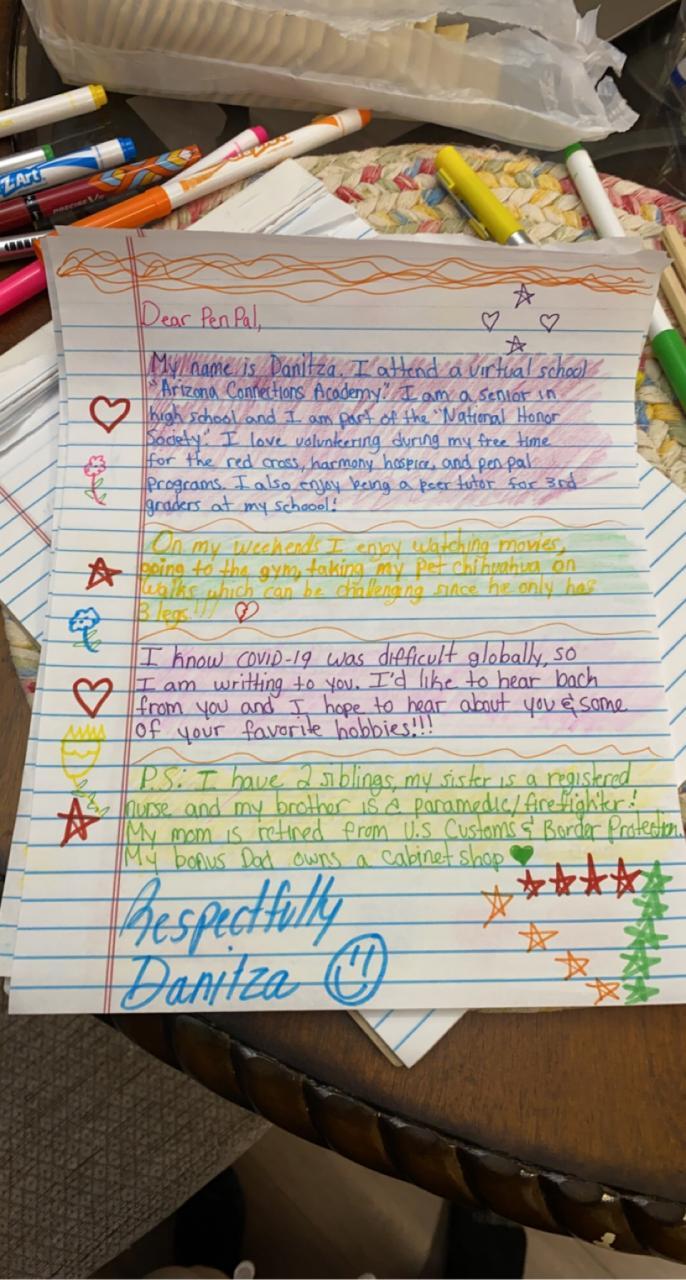 Dear Pen Pal,
My name is Danitza. I attend a virtual school
"Arizona Connections Academy." I am a senior in
high school and I am part of the "National Honor
Society". I love volunteering during my free time
for the red cross, harmony hospice, and pen pal
programs. I also enjoy being a peer tutor for 3rd
graders at my schoool!
On my weekends I enjoy watching movies,
going to the gym, taking my pet chihuahua on
walks which can be challenging since he only has
3 legs!!!
I know COVID-19 was difficult globally, so
I am writting to you. I'd like to hear bach
from you and I hope to hear about you & some
of your favorite hobbies!!!
P.S: I have 2 siblings, my sister is a registered
nurse and my brother is a paramedic/firefighter!
My mom is retired from U.S Customs & Border Protection.
My bonus Dad owns a cabinet shop
Respectfully
Danitza
Z-Art
PRECISE V5